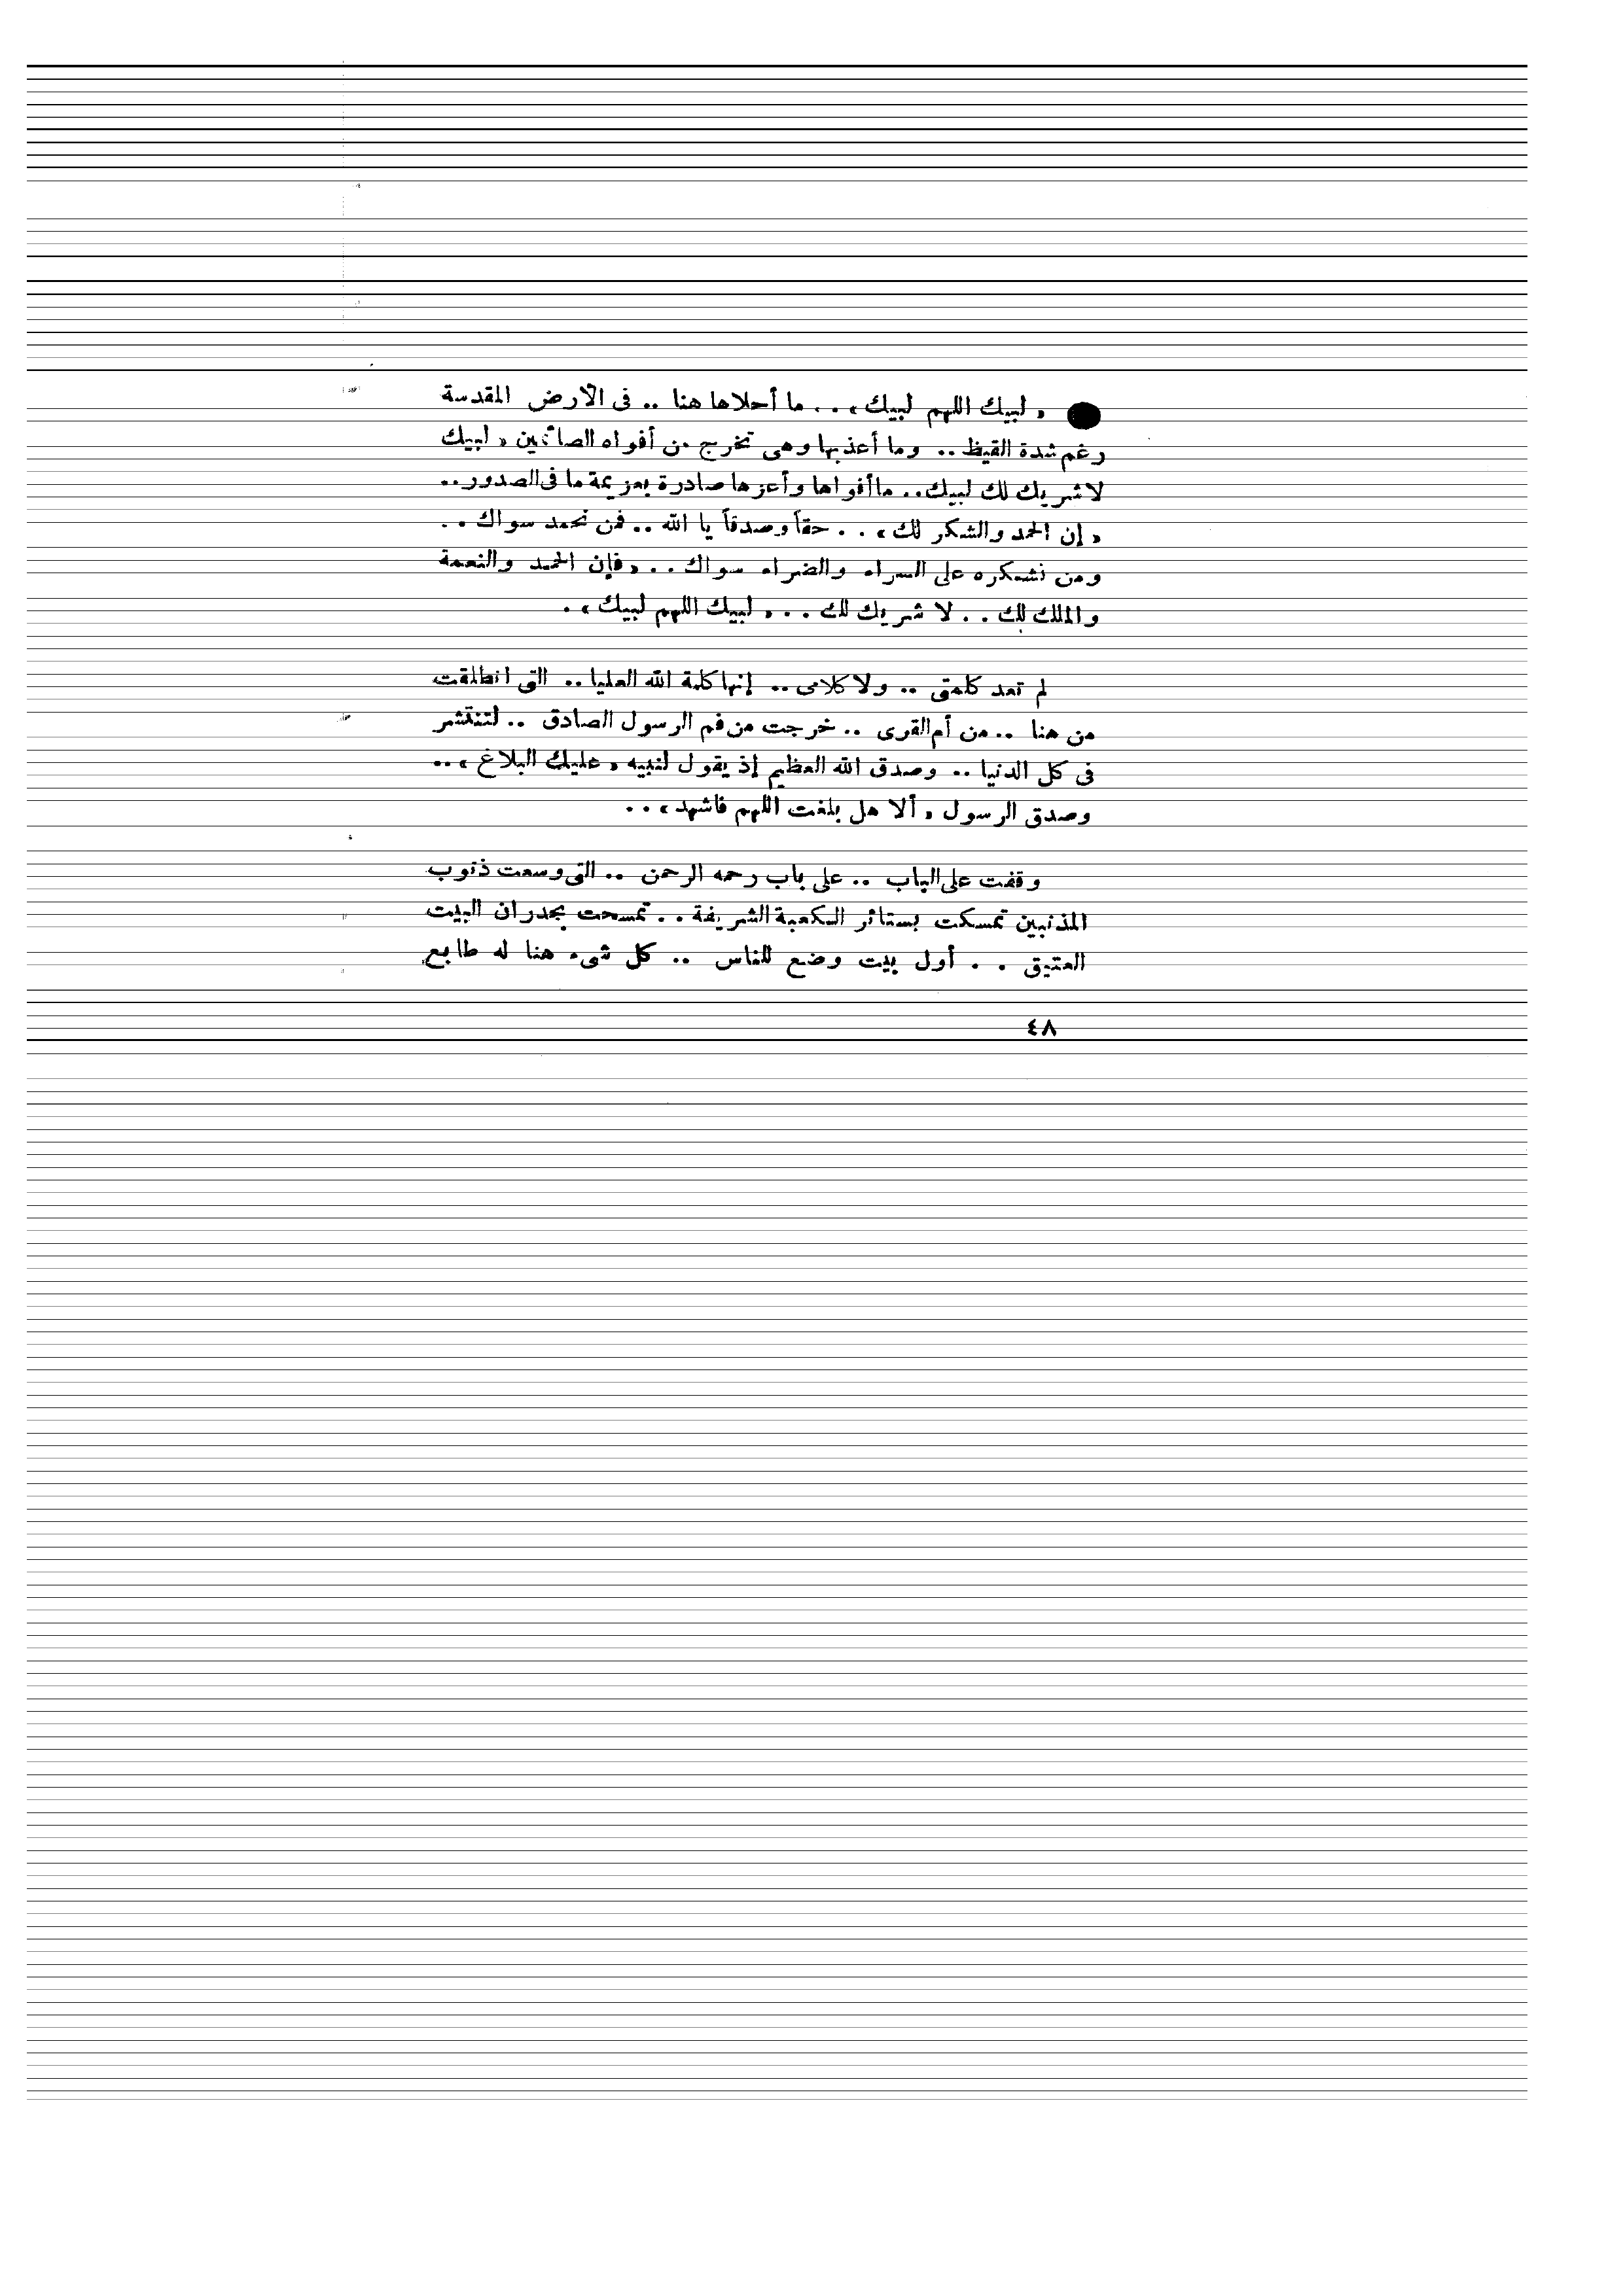 ● « لبيك اللهم لبيك » . . ما أحلاها هنا .. فى الأرض المقدسة
رغم شدة القيظ .. وما أعذبها وهى تخرج من أفواه الصائمين « لبيك
لا شريك لك لبيك .. ما أقواها وأعزها صادرة بعزيمة ما فى الصدور ..
« إن الحمد والشكر لك » . . حقاً وصدقاً يا الله .. فمن نحمد سواك . .
ومن نشكره على السراء والضراء سواك . . « فإن الحمد والنعمة
والملك لك . . لا شريك لك . . « لبيك اللهم لبيك » .
لم تعد كلمتى .. ولا كلامى .. إنها كلمة الله العليا .. التى انطلقت
من هنا .. من أم القرى .. خرجت من فم الرسول الصادق .. لتنتشر
فى كل الدنيا .. وصدق الله العظيم إذ يقول لنبيه « عليك البلاغ » ..
وصدق الرسول « ألا هل بلغت اللهم فاشهد » . .
وقفت على الباب .. على باب رحمه الرحمن .. التى وسعت ذنوب
المذنبين تمسكت بستائر الكعبة الشريفة . . تمسحت بجدران البيت
العتيق . . أول بيت وضع للناس .. كل شىء هنا له طابع
٤٨